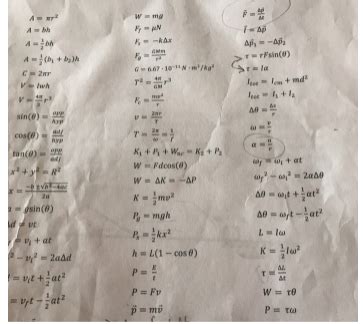 A = πr²
A = bh
A = ½bh
A = ½(b₁ + b₂)h
C = 2πr
V = lwh
V = 4π/3 r³
sin(θ) = opp/hyp
cos(θ) = adj/hyp
tan(θ) = opp/adj
x² + y² = R²
x = −b ± √b²−4ac / 2a
= gsin(θ)
d = vt
= vᵢ + at
² − vᵢ² = 2aΔd
= vᵢt + ½at²
= v_f t − ½at²
W = mg
F_f = μN
F_s = −kΔx
F_g = GMm/r²
G = 6.67 · 10⁻¹¹ N · m²/kg²
T² = 4π²/GM r³
F_c = mv²/r
v = 2πr/T
T = 2π/ω = 1/f
K₁ + P₁ + W_nc = K₂ + P₂
W = Fdcos(θ)
W = ΔK = −ΔP
K = ½mv²
P_g = mgh
P_s = ½kx²
h = L(1 − cosθ)
P = E/t
P = Fv
p⃗ = mv⃗
F⃗ = Δp⃗/Δt
I⃗ = Δp⃗
Δp⃗₁ = −Δp⃗₂
τ = rFsin(θ)
τ = Iα
I_tot = I_cm + md²
I_tot = I₁ + I₂
Δθ = Δs/r
ω = v/r
α = a/r
ω_f = ωᵢ + αt
ω_f² − ωᵢ² = 2αΔθ
Δθ = ωᵢt + ½αt²
Δθ = ω_f t − ½αt²
L = Iω
K = ½Iω²
τ = ΔL/Δt
W = τθ
P = τω